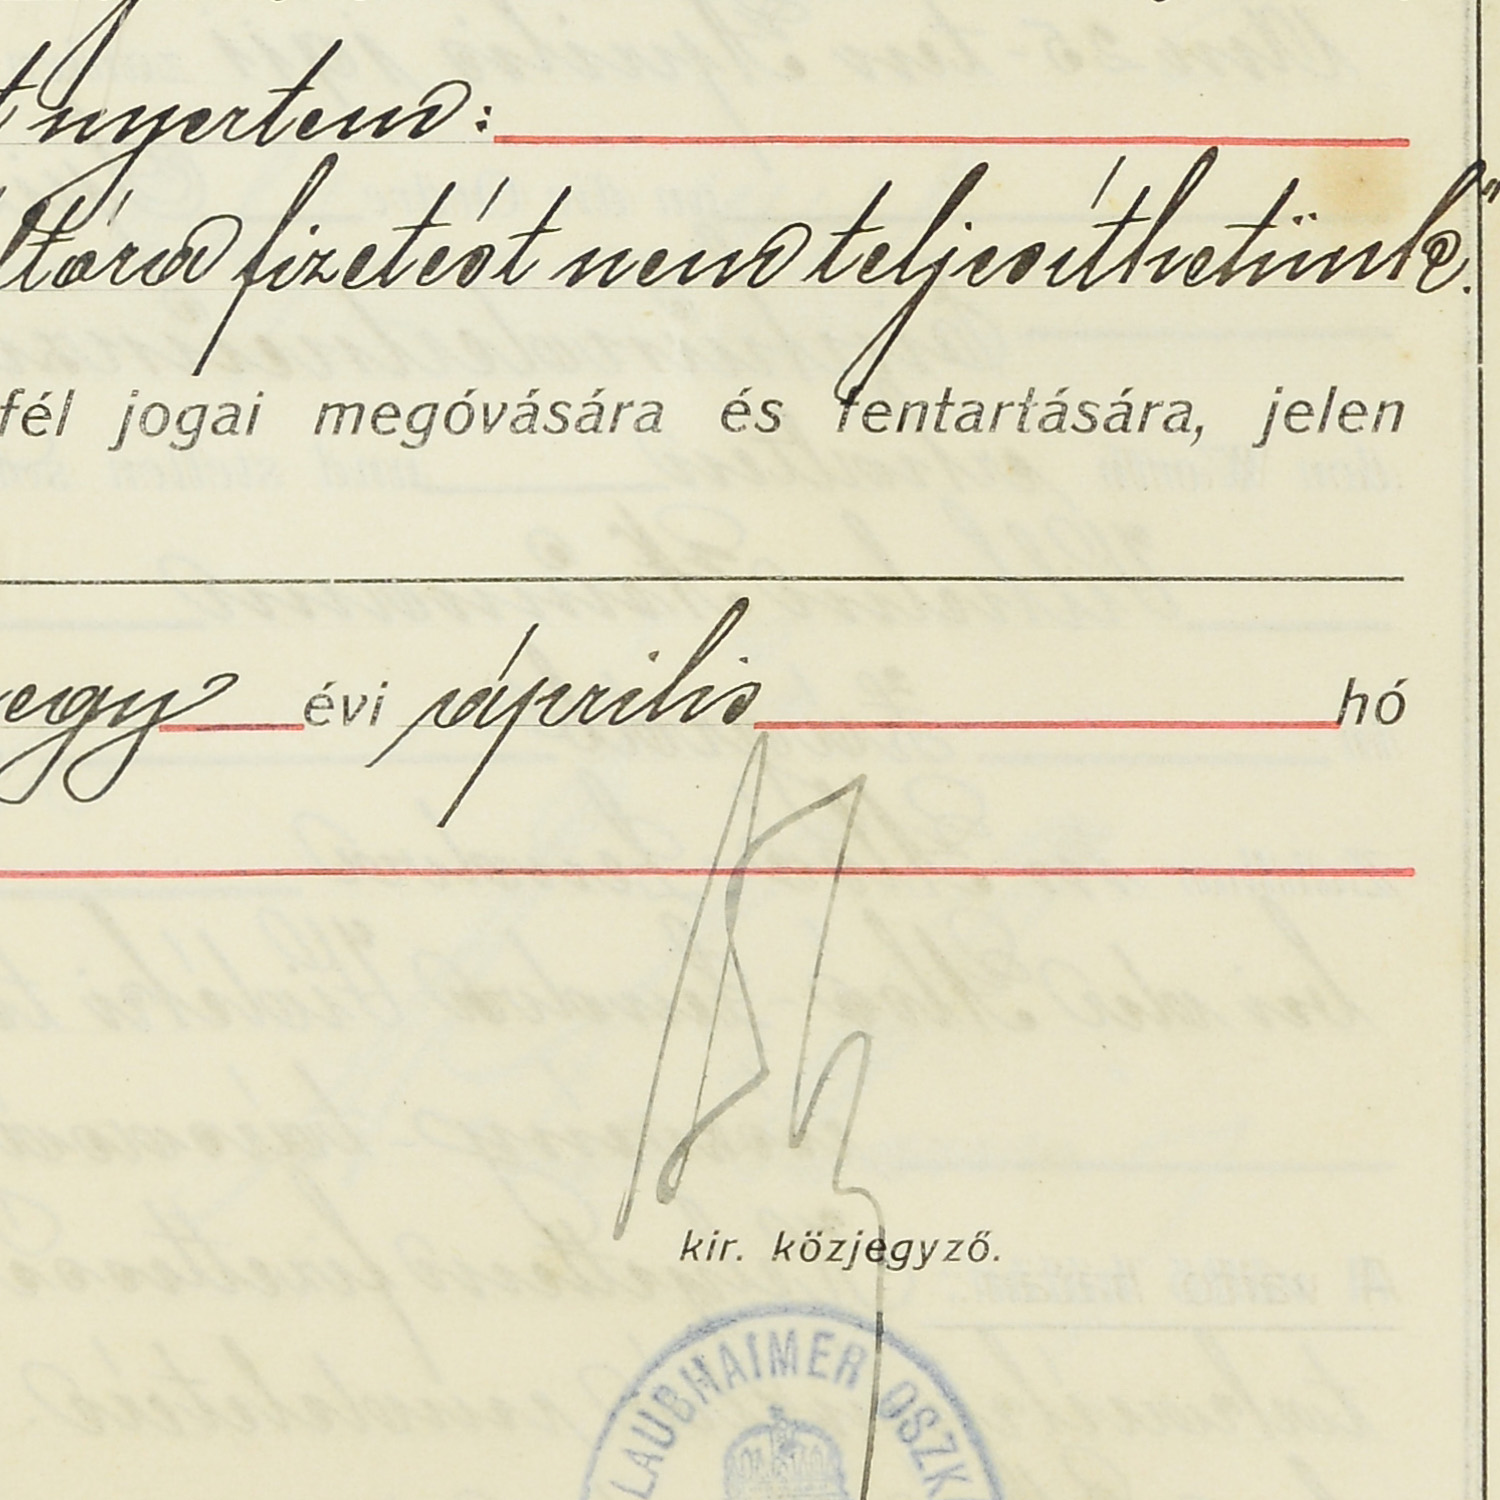 t nyertem:
ltóra fizetést nem teljesíthetünk."
fél jogai megóvására és fentartására, jelen
egy évi április hó
kir. közjegyző.
LAUBHAIMER OSZK